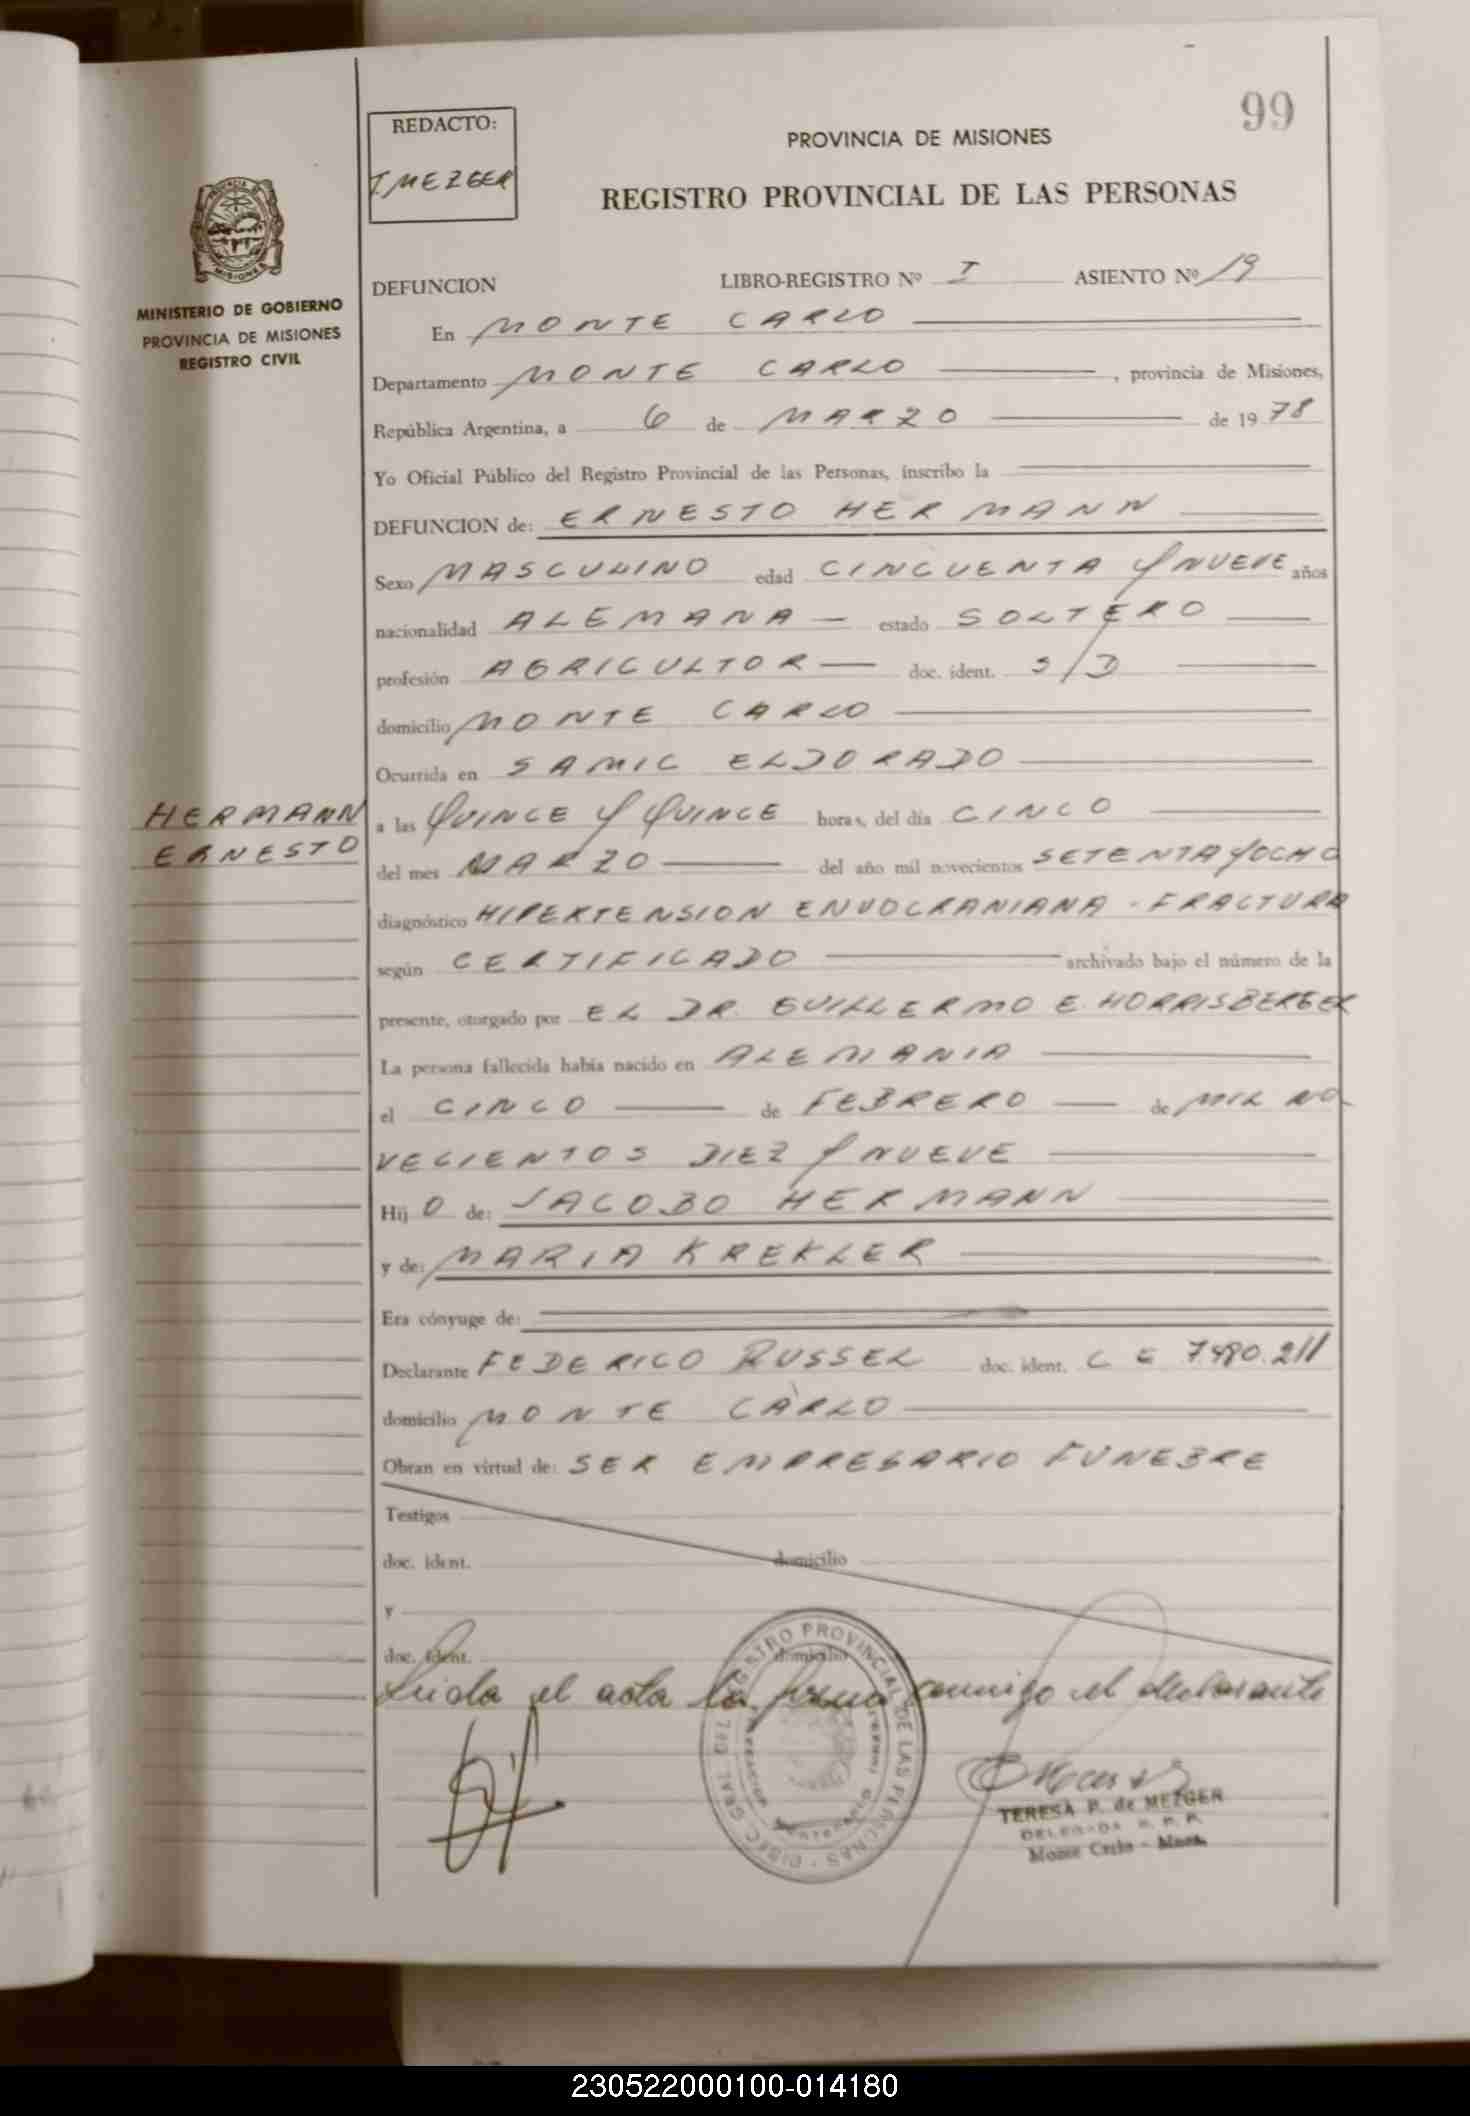 99
REDACTO:
T. MEZGER
PROVINCIA DE MISIONES
REGISTRO PROVINCIAL DE LAS PERSONAS
MINISTERIO DE GOBIERNO
PROVINCIA DE MISIONES
REGISTRO CIVIL
DEFUNCION LIBRO-REGISTRO Nº I ASIENTO Nº 19
En MONTE CARLO
Departamento MONTE CARLO, provincia de Misiones,
República Argentina, a 6 de MARZO de 1978
Yo Oficial Público del Registro Provincial de las Personas, inscribo la
DEFUNCION de: ERNESTO HERMANN
Sexo MASCULINO edad CINCUENTA Y NUEVE años
nacionalidad ALEMANA — estado SOLTERO
profesión AGRICULTOR — doc. ident. S/D
domicilio MONTE CARLO
Ocurrida en SAMIC ELDORADO
HERMANN
ERNESTO
a las QUINCE Y QUINCE horas, del día CINCO
del mes MARZO del año mil novecientos SETENTA Y OCHO
diagnóstico HIPERTENSION ENDOCRANIANA - FRACTURA
según CERTIFICADO archivado bajo el número de la
presente, otorgado por EL DR. GUILLERMO E. HORRISBERGER
La persona fallecida había nacido en ALEMANIA
el CINCO de FEBRERO — de MIL NO
VECIENTOS DIEZ Y NUEVE
Hij O de: JACOBO HERMANN
y de: MARIA KREKLER
Era cónyuge de:
Declarante FEDERICO RUSSEL doc. ident. C E 7480.211
domicilio MONTE CARLO
Obran en virtud de: SER EMPRESARIO FUNEBRE
Testigos
doc. ident. domicilio
y
doc. ident. domicilio
Leida el acta la firma conmigo el declarante
DIREC. GRAL. DEL REGISTRO PROVINCIAL DE LAS PERSONAS
TERESA P. de MEZGER
DELEGADA R. P. P.
Monte Carlo - Mnes.
230522000100-014180